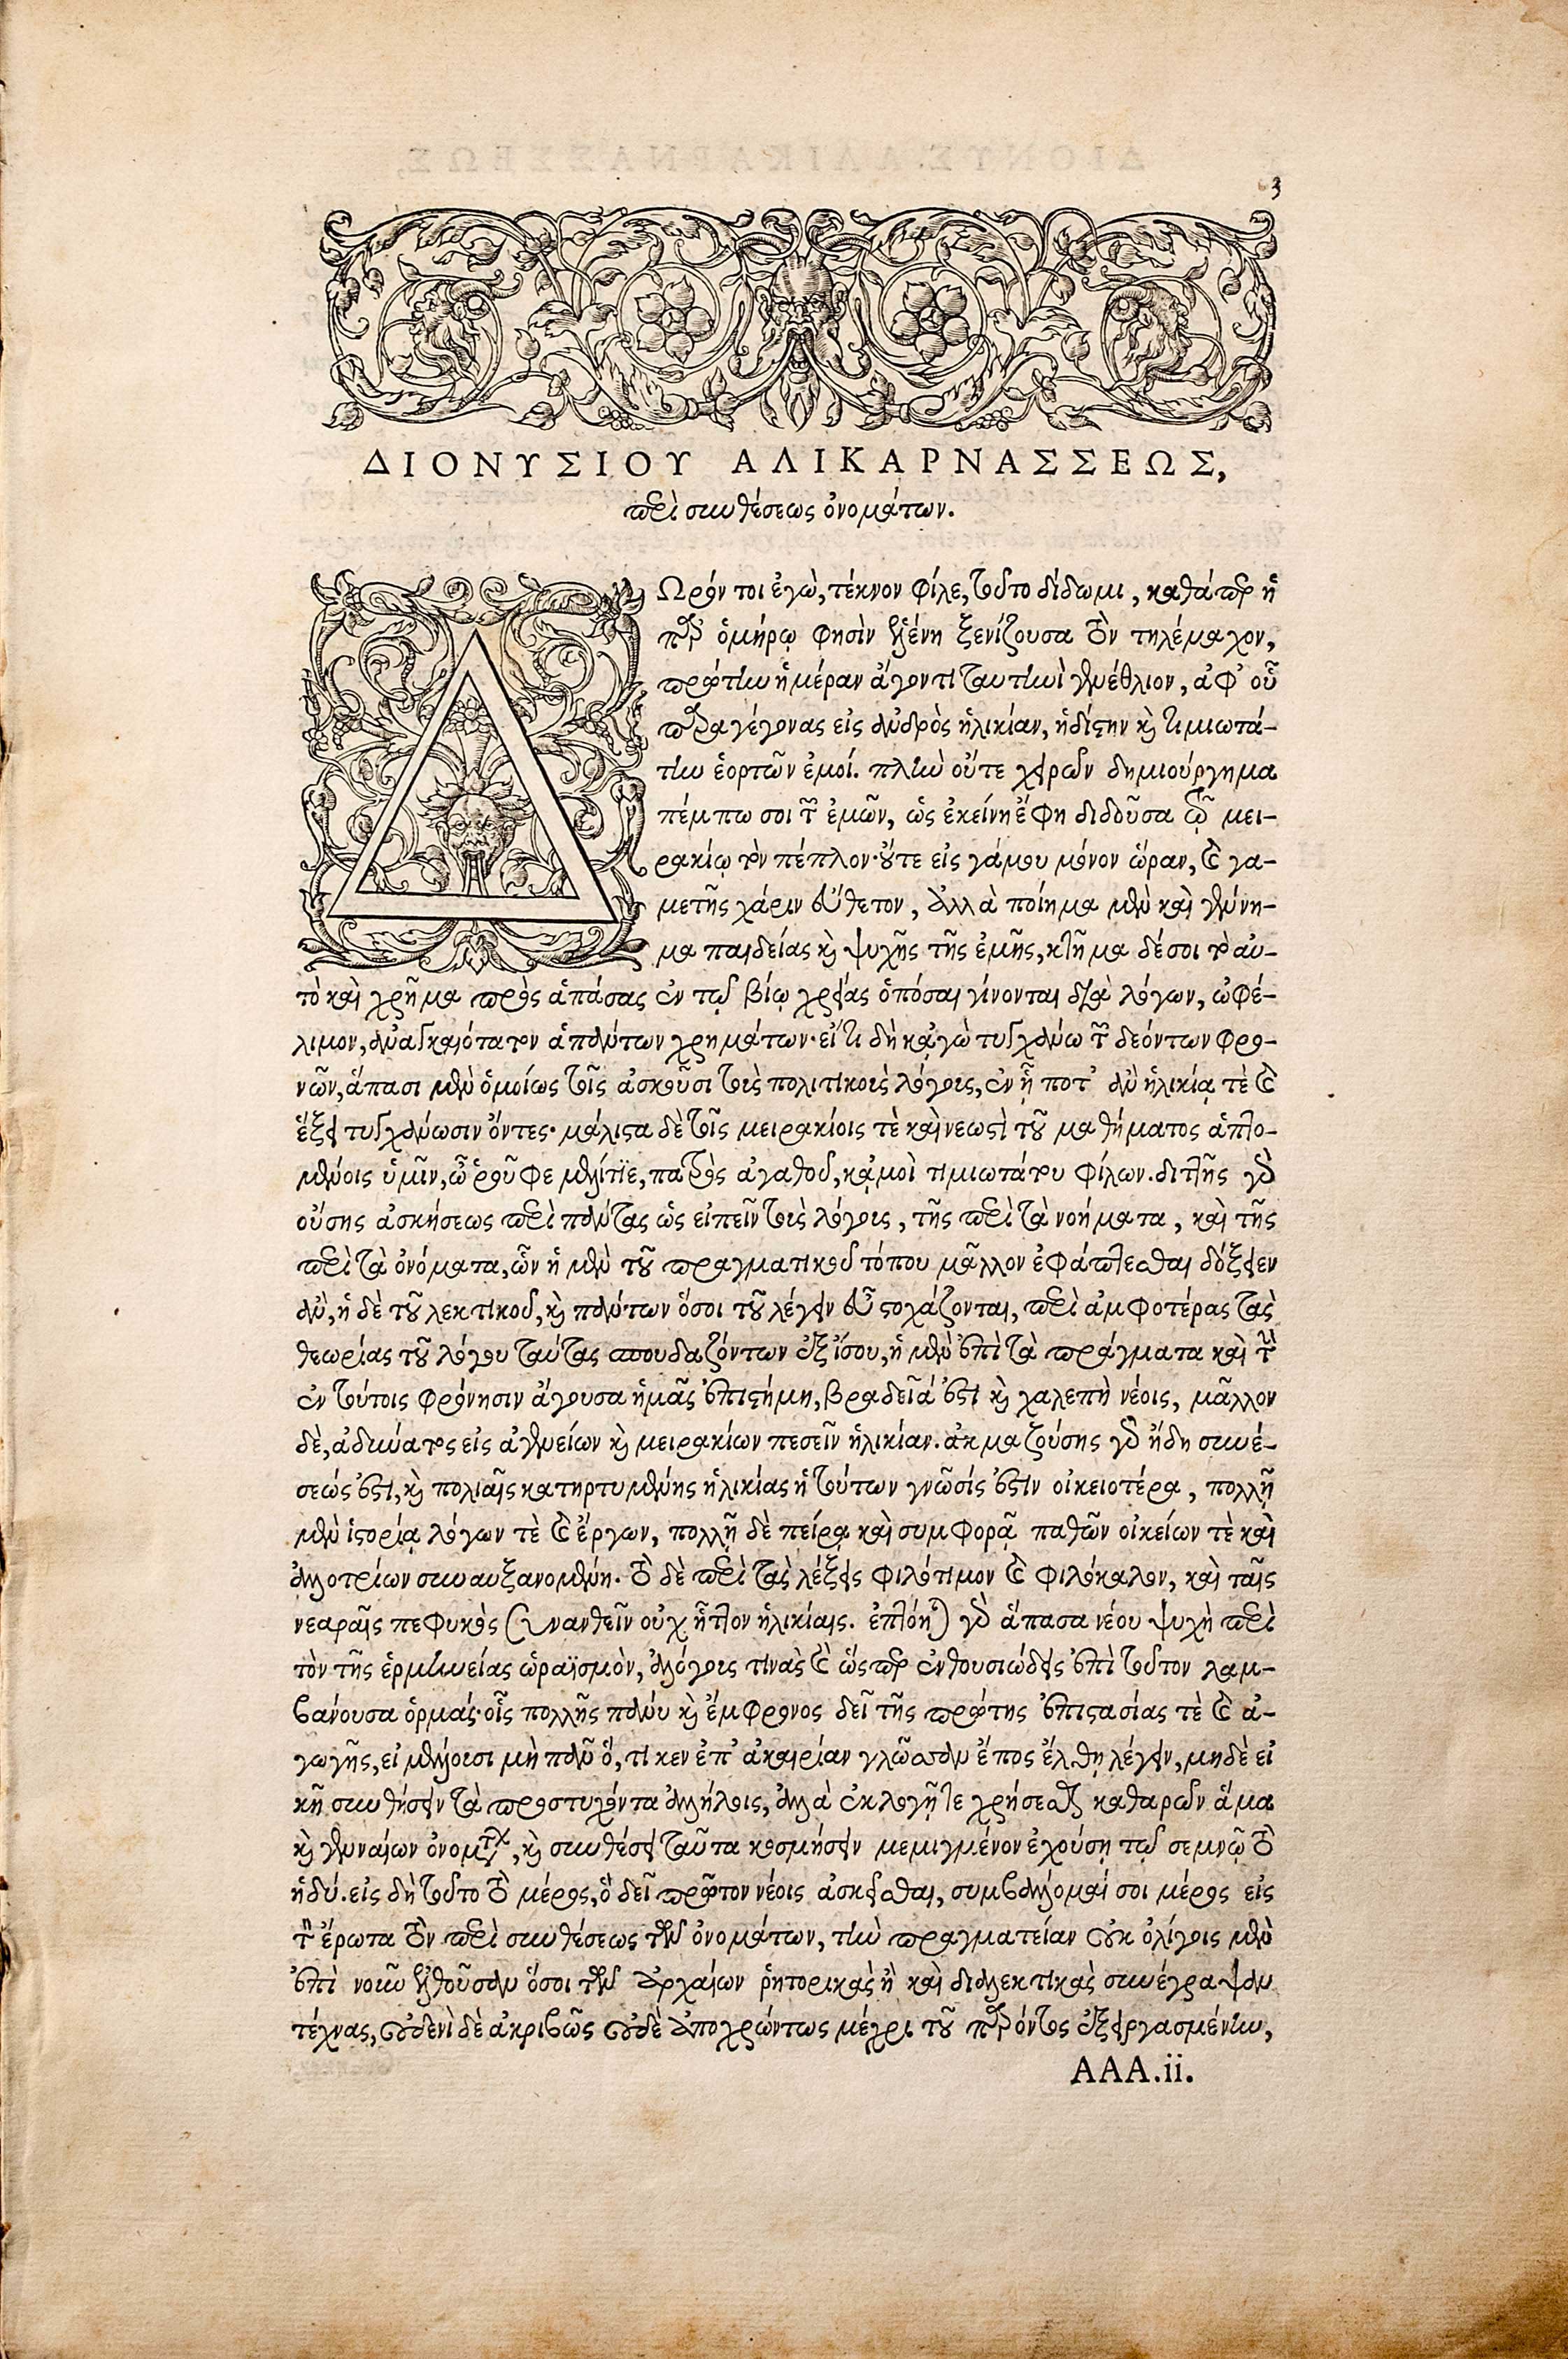 3
ΔΙΟΝΥΣΙΟΥ ΑΛΙΚΑΡΝΑΣΣΕΩΣ,
περὶ συνθέσεως ὀνομάτων.
ΔΩρόν τοι ἐγὼ, τέκνον φίλε, τοῦτο δίδωμι, καθάπερ ἡ
παρ' ὁμήρῳ φησὶν ἑλένη ξενίζουσα τὸν τηλέμαχον,
πρώτην ἡμέραν ἄγοντι ταυτηνὶ γενέθλιον, ἀφ' οὗ
παραγέγονας εἰς ἀνδρὸς ἡλικίαν, ἡδίστην καὶ τιμιωτά-
την ἑορτῶν ἐμοί. πλὴν οὔτε χειρῶν δημιούργημα
πέμπω σοι τῶν ἐμῶν, ὡς ἐκείνη ἔφη διδοῦσα τῷ μει-
ρακίῳ τὸν πέπλον· οὔτε εἰς γάμου μόνον ὥραν, καὶ γα-
μετῆς χάριν εὔθετον, ἀλλὰ ποίημα μὲν καὶ γέννη-
μα παιδείας καὶ ψυχῆς τῆς ἐμῆς, κτῆμα δέ σοι τὸ αὐ-
τὸ καὶ χρῆμα πρὸς ἁπάσας ἐν τῷ βίῳ χρείας ὁπόσαι γίνονται διὰ λόγων, ὠφέ-
λιμον, ἀναγκαιότατον ἁπάντων χρημάτων· εἴ τι δὴ κᾀγὼ τυγχάνω τῶν δεόντων φρο-
νῶν, ἅπασι μὲν ὁμοίως τοῖς ἀσκοῦσι τοὺς πολιτικοὺς λόγους, ἐν ᾗ ποτ' ἂν ἡλικίᾳ τὲ καὶ
ἕξει τυγχάνωσιν ὄντες· μάλιστα δὲ τοῖς μειρακίοις τὲ καὶ νεωστὶ τοῦ μαθήματος ἁπτο-
μένοις ὑμῖν, ὦ ῥοῦφε μελίτιε, πατρὸς ἀγαθοῦ, κᾀμοὶ τιμιωτάτου φίλων. διττῆς γὰρ
οὔσης ἀσκήσεως περὶ πάντας ὡς εἰπεῖν τοὺς λόγους, τῆς περὶ τὰ νοήματα, καὶ τῆς
περὶ τὰ ὀνόματα, ὧν ἡ μὲν τοῦ πραγματικοῦ τόπου μᾶλλον ἐφάπτεσθαι δόξειεν
ἂν, ἡ δὲ τοῦ λεκτικοῦ, καὶ πάντων ὅσοι τοῦ λέγειν εὖ στοχάζονται, περὶ ἀμφοτέρας τὰς
θεωρίας τοῦ λόγου ταύτας σπουδαζόντων ἐξ ἴσου, ἡ μὲν ἐπὶ τὰ πράγματα καὶ τὴν
ἐν τούτοις φρόνησιν ἄγουσα ἡμᾶς ἐπιστήμη, βραδεῖά ἐστι καὶ χαλεπὴ νέοις, μᾶλλον
δὲ, ἀδύνατος εἰς ἀγενείων καὶ μειρακίων πεσεῖν ἡλικίαν. ἀκμαζούσης γὰρ ἤδη συνέ-
σεώς ἐστι, καὶ πολιαῖς κατηρτυμένης ἡλικίας ἡ τούτων γνῶσίς ἐστιν οἰκειοτέρα, πολλῇ
μὲν ἱστορίᾳ λόγων τὲ καὶ ἔργων, πολλῇ δὲ πείρᾳ καὶ συμφορᾷ παθῶν οἰκείων τὲ καὶ
ἀλλοτρίων συναυξανομένη. τὸ δὲ περὶ τὰς λέξεις φιλότιμον καὶ φιλόκαλον, καὶ ταῖς
νεαραῖς πεφυκὸς συνανθεῖν οὐχ ἧττον ἡλικίαις. ἐπτόηται γὰρ ἅπασα νέου ψυχὴ περὶ
τὸν τῆς ἑρμηνείας ὡραϊσμὸν, ἀλόγους τινὰς καὶ ὥσπερ ἐνθουσιώδεις ἐπὶ τοῦτον λαμ-
βάνουσα ὁρμάς· οἷς πολλῆς πάνυ καὶ ἔμφρονος δεῖ τῆς πρώτης ἐπιστασίας τὲ καὶ ἀ-
γωγῆς, εἰ μέλλουσι μὴ πᾶν ὅ, τι κεν ἐπ' ἀκαιρίαν γλῶσσαν ἔπος ἔλθῃ λέγειν, μηδὲ εἰ
κῆ συνθήσειν τὰ προστυχόντα ἀλλήλοις, ἀλλὰ ἐκλογῇ τε χρήσεσθαι καθαρῶν ἅμα
καὶ γενναίων ὀνομάτων, καὶ συνθέσει ταῦτα κοσμήσειν μεμιγμένον ἐχούσῃ τῷ σεμνῷ τὸ
ἡδύ. εἰς δὴ τοῦτο τὸ μέρος, ὃ δεῖ πρῶτον νέοις ἀσκεῖσθαι, συμβάλλομαί σοι μέρος εἰς
τὸν ἔρωτα τὸν περὶ συνθέσεως τῶν ὀνομάτων, τὴν πραγματείαν οὐκ ὀλίγοις μὲν
ἐπὶ νοῦν ἐλθοῦσαν ὅσοι τῶν ἀρχαίων ῥητορικὰς ἢ καὶ διαλεκτικὰς συνέγραψαν
τέχνας, οὐδενὶ δὲ ἀκριβῶς οὐδὲ ἀποχρώντως μέχρι τοῦ παρόντος ἐξειργασμένην,
AAA.ii.